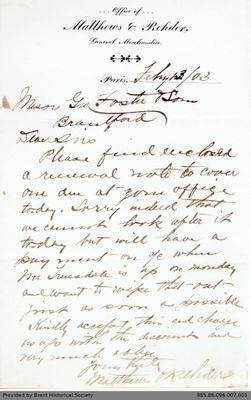 Office of
Matthews & Rehder,
General Merchandise.
Paris, Feby 13/03
Messrs Geo Foster & Son
Brantford
Dear Sirs
Please find enclosed
a renewal note to cover
one due at your office
today. Sorry indeed that
we cannot look after it
today but will have a
payment on a/c when
Mr Truesdale is up on monday
and want to wipe this out
just as soon as possible
Kindly accept this and charge
us up with the discount and
very much oblige
Yours truly
Matthews & Rehder
Provided by Brant Historical Society
985.86.096.007.001